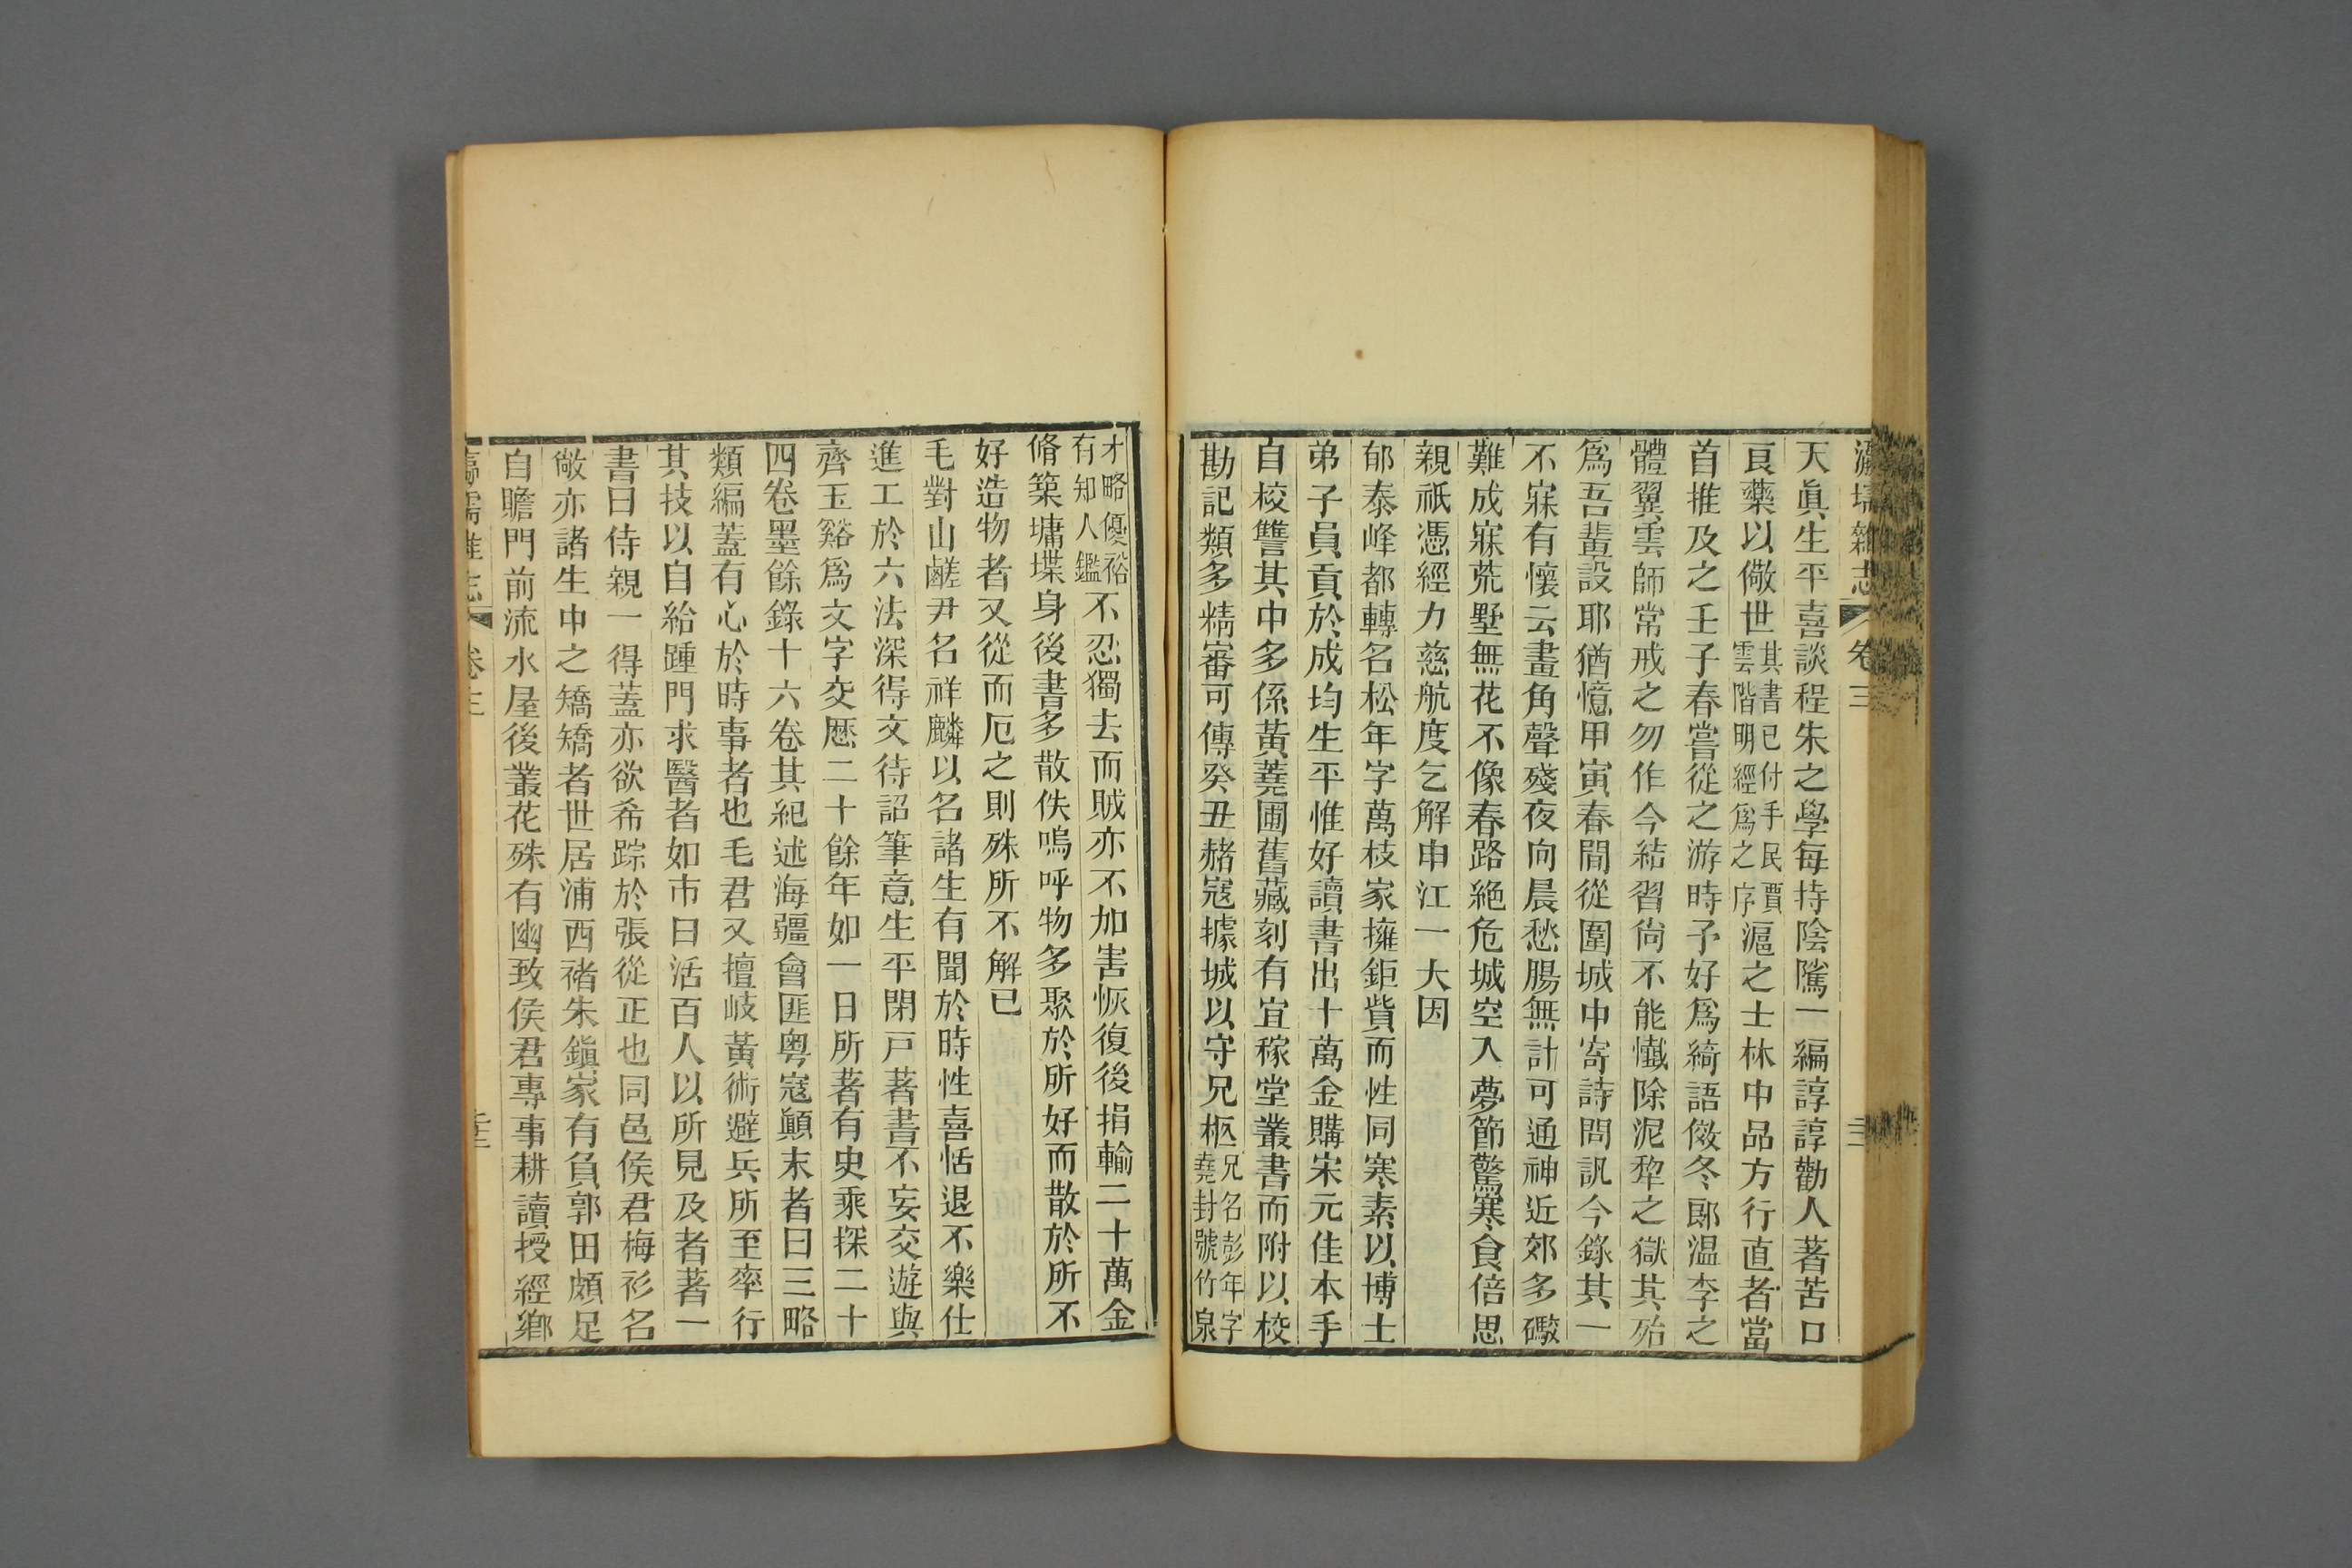 瀛壖雜志 卷三
天眞生平喜談程朱之學每持陰隲一編諄諄勸人著苦口
良藥以儆世其書已付手民賈雲階明經爲之序滬之士林中品方行直者當
首推及之壬子春嘗從之游時予好爲綺語傚冬郞温李之
體翼雲師常戒之勿作今結習尙不能懺除泥犂之獄其殆
爲吾輩設耶猶憶甲寅春間從圍城中寄詩問訊今錄其一
不寐有懷云畫角聲殘夜向晨愁腸無計可通神近郊多礮
難成寐荒墅無花不像春路絕危城空入夢節驚寒食倍思
親祇憑經力慈航度乞解申江一大因
郁泰峰都轉名松年字萬枝家擁鉅貲而性同寒素以博士
弟子員貢於成均生平惟好讀書出十萬金購宋元佳本手
自校讐其中多係黃蕘圃舊藏刻有宜稼堂叢書而附以校
勘記類多精審可傳癸丑赭寇據城以守兄柩兄名彭年字堯封號竹泉
才略優裕有知人鑑不忍獨去而賊亦不加害恢復後捐輸二十萬金
脩築墉堞身後書多散佚嗚呼物多聚於所好而散於所不
好造物者又從而厄之則殊所不解已
毛對山鹺尹名祥麟以名諸生有聞於時性喜恬退不樂仕
進工於六法深得文待詔筆意生平閉戸著書不妄交遊與
齊玉谿爲文字交歷二十餘年如一日所著有史乘探二十
四卷墨餘錄十六卷其紀述海疆會匪粤寇顚末者曰三略
類編蓋有心於時事者也毛君又擅岐黃術避兵所至率行
其技以自給踵門求醫者如市日活百人以所見及者著一
書曰侍親一得蓋亦欲希踪於張從正也同邑侯君梅衫名
敞亦諸生中之矯矯者世居浦西褚朱鎭家有負郭田頗足
自贍門前流水屋後叢花殊有幽致侯君專事耕讀授經鄉